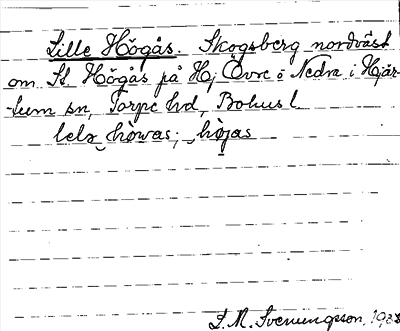 Lille Högås. Skogsberg nordväst
om St Högås på Hj Övre o Nedra i Hjär-
tum sn, Torpe hd, Bohusl.
lela hòwas; hòjas
S. M. Svenungsson, 19